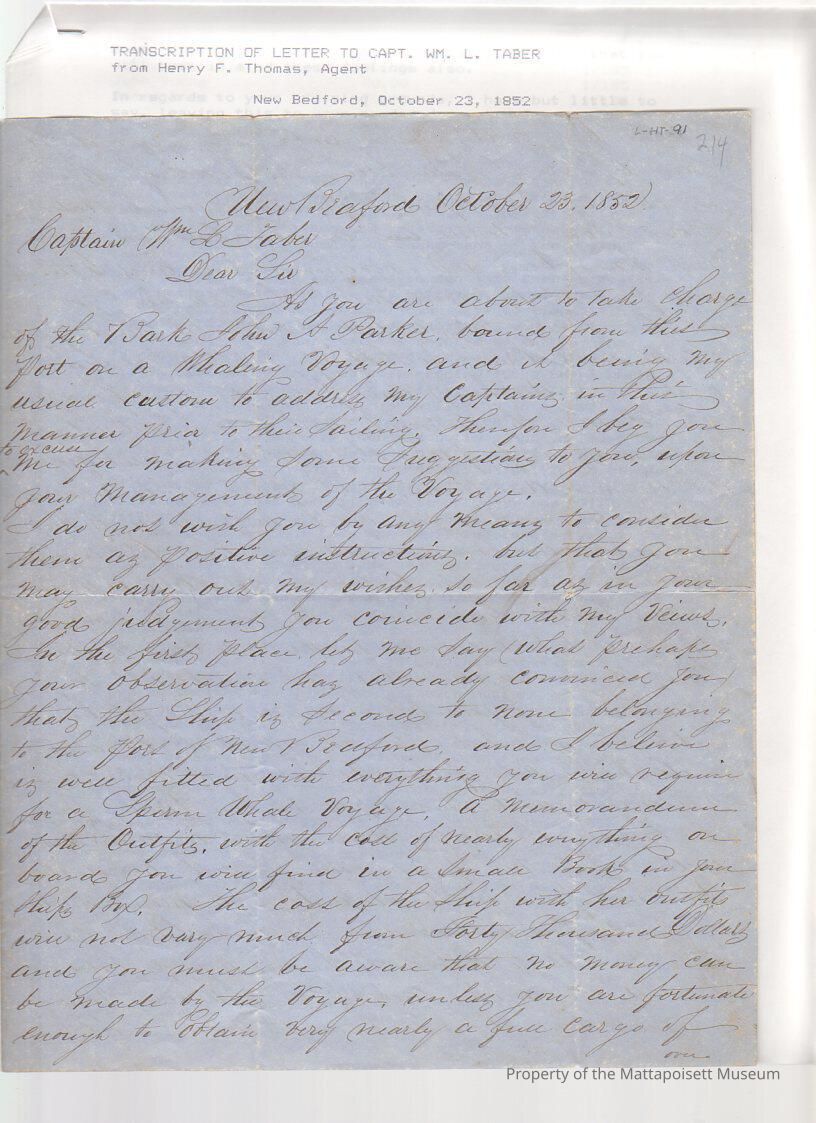 TRANSCRIPTION OF LETTER TO CAPT. WM. L. TABER
from Henry F. Thomas, Agent
New Bedford, October 23, 1852
L-HT-91
214
New Bedford October 23. 1852
Captain Wm L Taber
Dear Sir
As you are about to take charge
of the Bark John A Parker, bound from this
Port on a Whaling Voyage. and it being my
usual custom to address my Captains in this
manner prior to their sailing, Therefore I beg you
to excuse
me for making some suggestions to you, upon
your management of the Voyage.
I do not wish you by any means to consider
them as positive instructions. but that you
may carry out my wishes so far as in your
good judgement you coincide with my Views.
In the first place let me say what prehaps
your observation has already convinced you
that the Ship is second to none belonging
to the Port of New Bedford, and I believe
is well fitted with everything you will require
for a Sperm Whale Voyage. A Memorandum
of the Outfits, with the cost of nearly everything on
board you will find in a small Book in your
Ships Box. The cost of the Ship with her outfits
will not vary much from Forty Thousand Dollars
and you must be aware that no money can
be made by the Voyage, unless you are fortunate
enough to obtain very nearly a full cargo of
over
Property of the Mattapoisett Museum